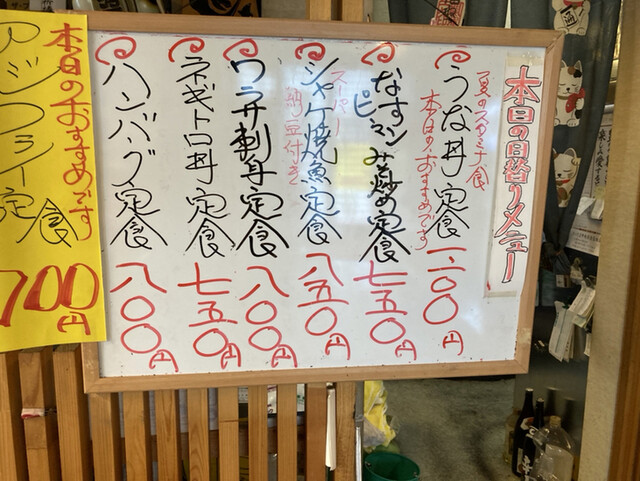 本日の日替りメニュー
夏のスタミナ食
本日のおすすめです
うな丼定食 一、一〇〇円
なすピーマンみそ炒め定食 七五〇円
スーパー納豆付き
シャケ焼魚定食 八五〇円
ワラサ刺身定食 八〇〇円
ネギトロ丼定食 七五〇円
ハンバーグ定食 八〇〇円
本日のおすすめです
アジフライ定食
700円